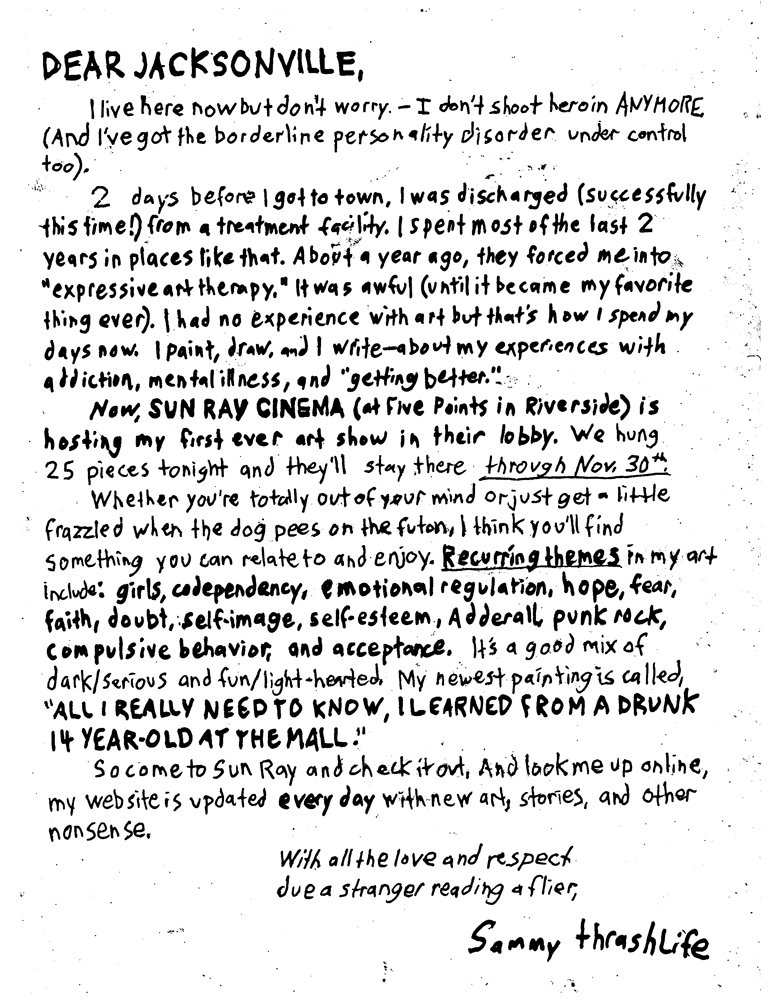 DEAR JACKSONVILLE,
I live here now but don't worry. – I don't shoot heroin ANYMORE
(And I've got the borderline personality disorder under control
too).
2 days before I got to town, I was discharged (successfully
this time!) from a treatment facility. I spent most of the last 2
years in places like that. About a year ago, they forced me into
"expressive art therapy." It was awful (until it became my favorite
thing ever). I had no experience with art but that's how I spend my
days now. I paint, draw, and I write—about my experiences with
addiction, mental illness, and "getting better."
Now, SUN RAY CINEMA (at Five Points in Riverside) is
hosting my first ever art show in their lobby. We hung
25 pieces tonight and they'll stay there through Nov. 30th.
Whether you're totally out of your mind or just get a little
frazzled when the dog pees on the futon, I think you'll find
something you can relate to and enjoy. Recurring themes in my art
include: girls, codependency, emotional regulation, hope, fear,
faith, doubt, self-image, self-esteem, Adderall, punk rock,
compulsive behavior, and acceptance. It's a good mix of
dark/serious and fun/light-hearted. My newest painting is called,
"ALL I REALLY NEED TO KNOW, I LEARNED FROM A DRUNK
14 YEAR-OLD AT THE MALL."
So come to Sun Ray and check it out. And look me up online,
my website is updated every day with new art, stories, and other
nonsense.
With all the love and respect
due a stranger reading a flier,
Sammy thrashLife